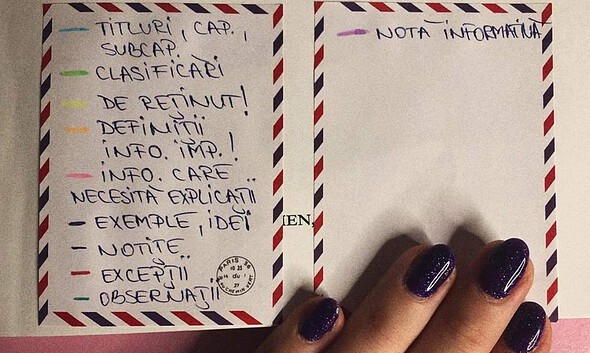 TITLURI, CAP.,
SUBCAP.
CLASIFICĂRI
DE REȚINUT!
DEFINIȚII
INFO. IMP.!
INFO. CARE
NECESITĂ EXPLICAȚII
EXEMPLE, IDEI
NOTIȚE
EXCEPȚII
OBSERVAȚII
PARIS 56
NOTĂ INFORMATINĂ
IEN,